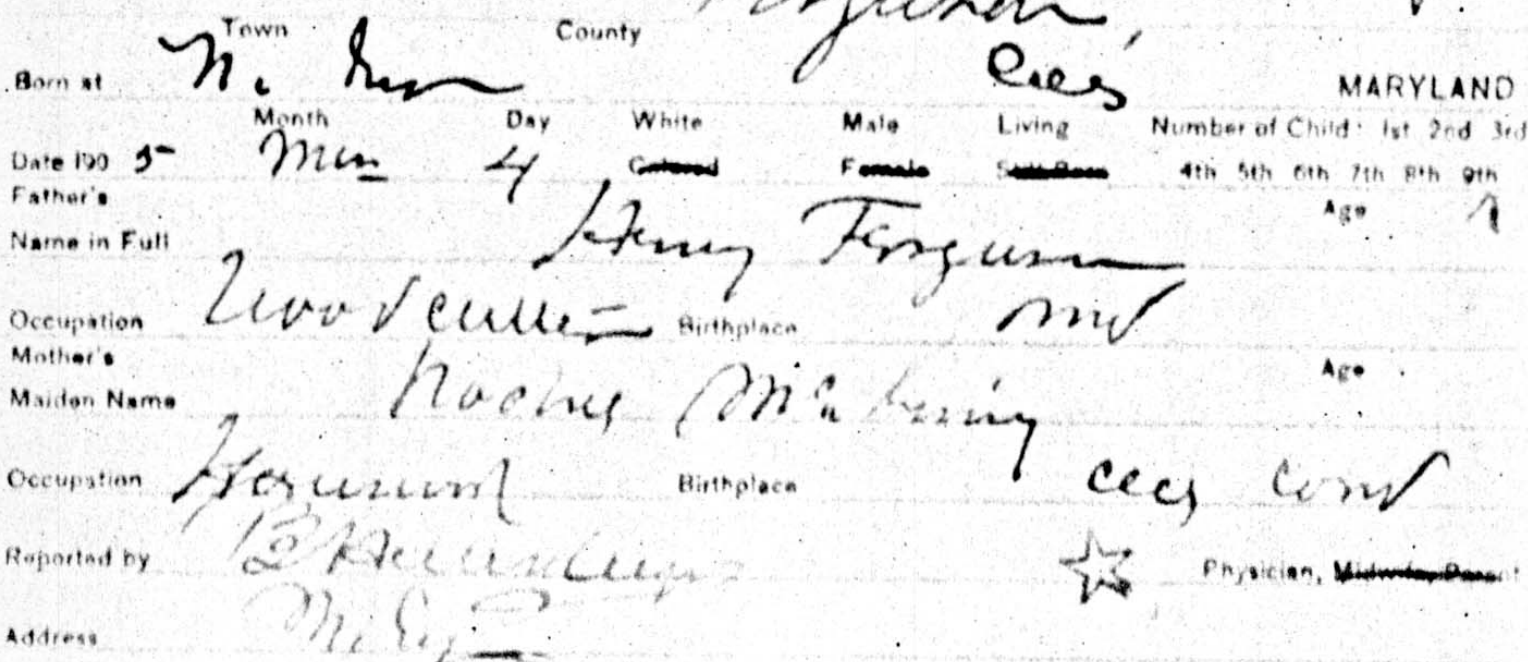 Ferguson,
Town County
Born at N. East Cecil MARYLAND
Month Day White Male Living Number of Child: 1st 2nd 3rd
Date 190 5 Mch 4 Colored Female Still Born 4th 5th 6th 7th 8th 9th
Father's Age
Name in Full Henry Ferguson
Occupation Woodcutter Birthplace Md
Mother's Age
Maiden Name Rachel
Occupation Birthplace Cecil Co Md
Reported by Physician, Midwife, Parent
Address